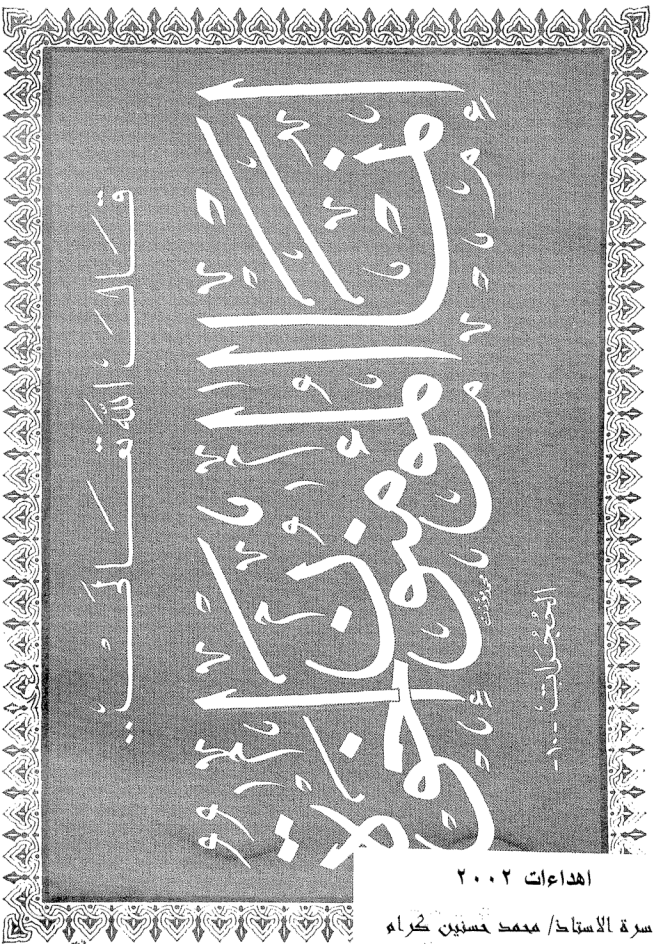 قال الله تعالى:
إنما المؤمنون إخوة
الحجرات -١٠-
اهداءات ٢٠٠٢
سرة الاستاذ/ محمد حسنين كرام